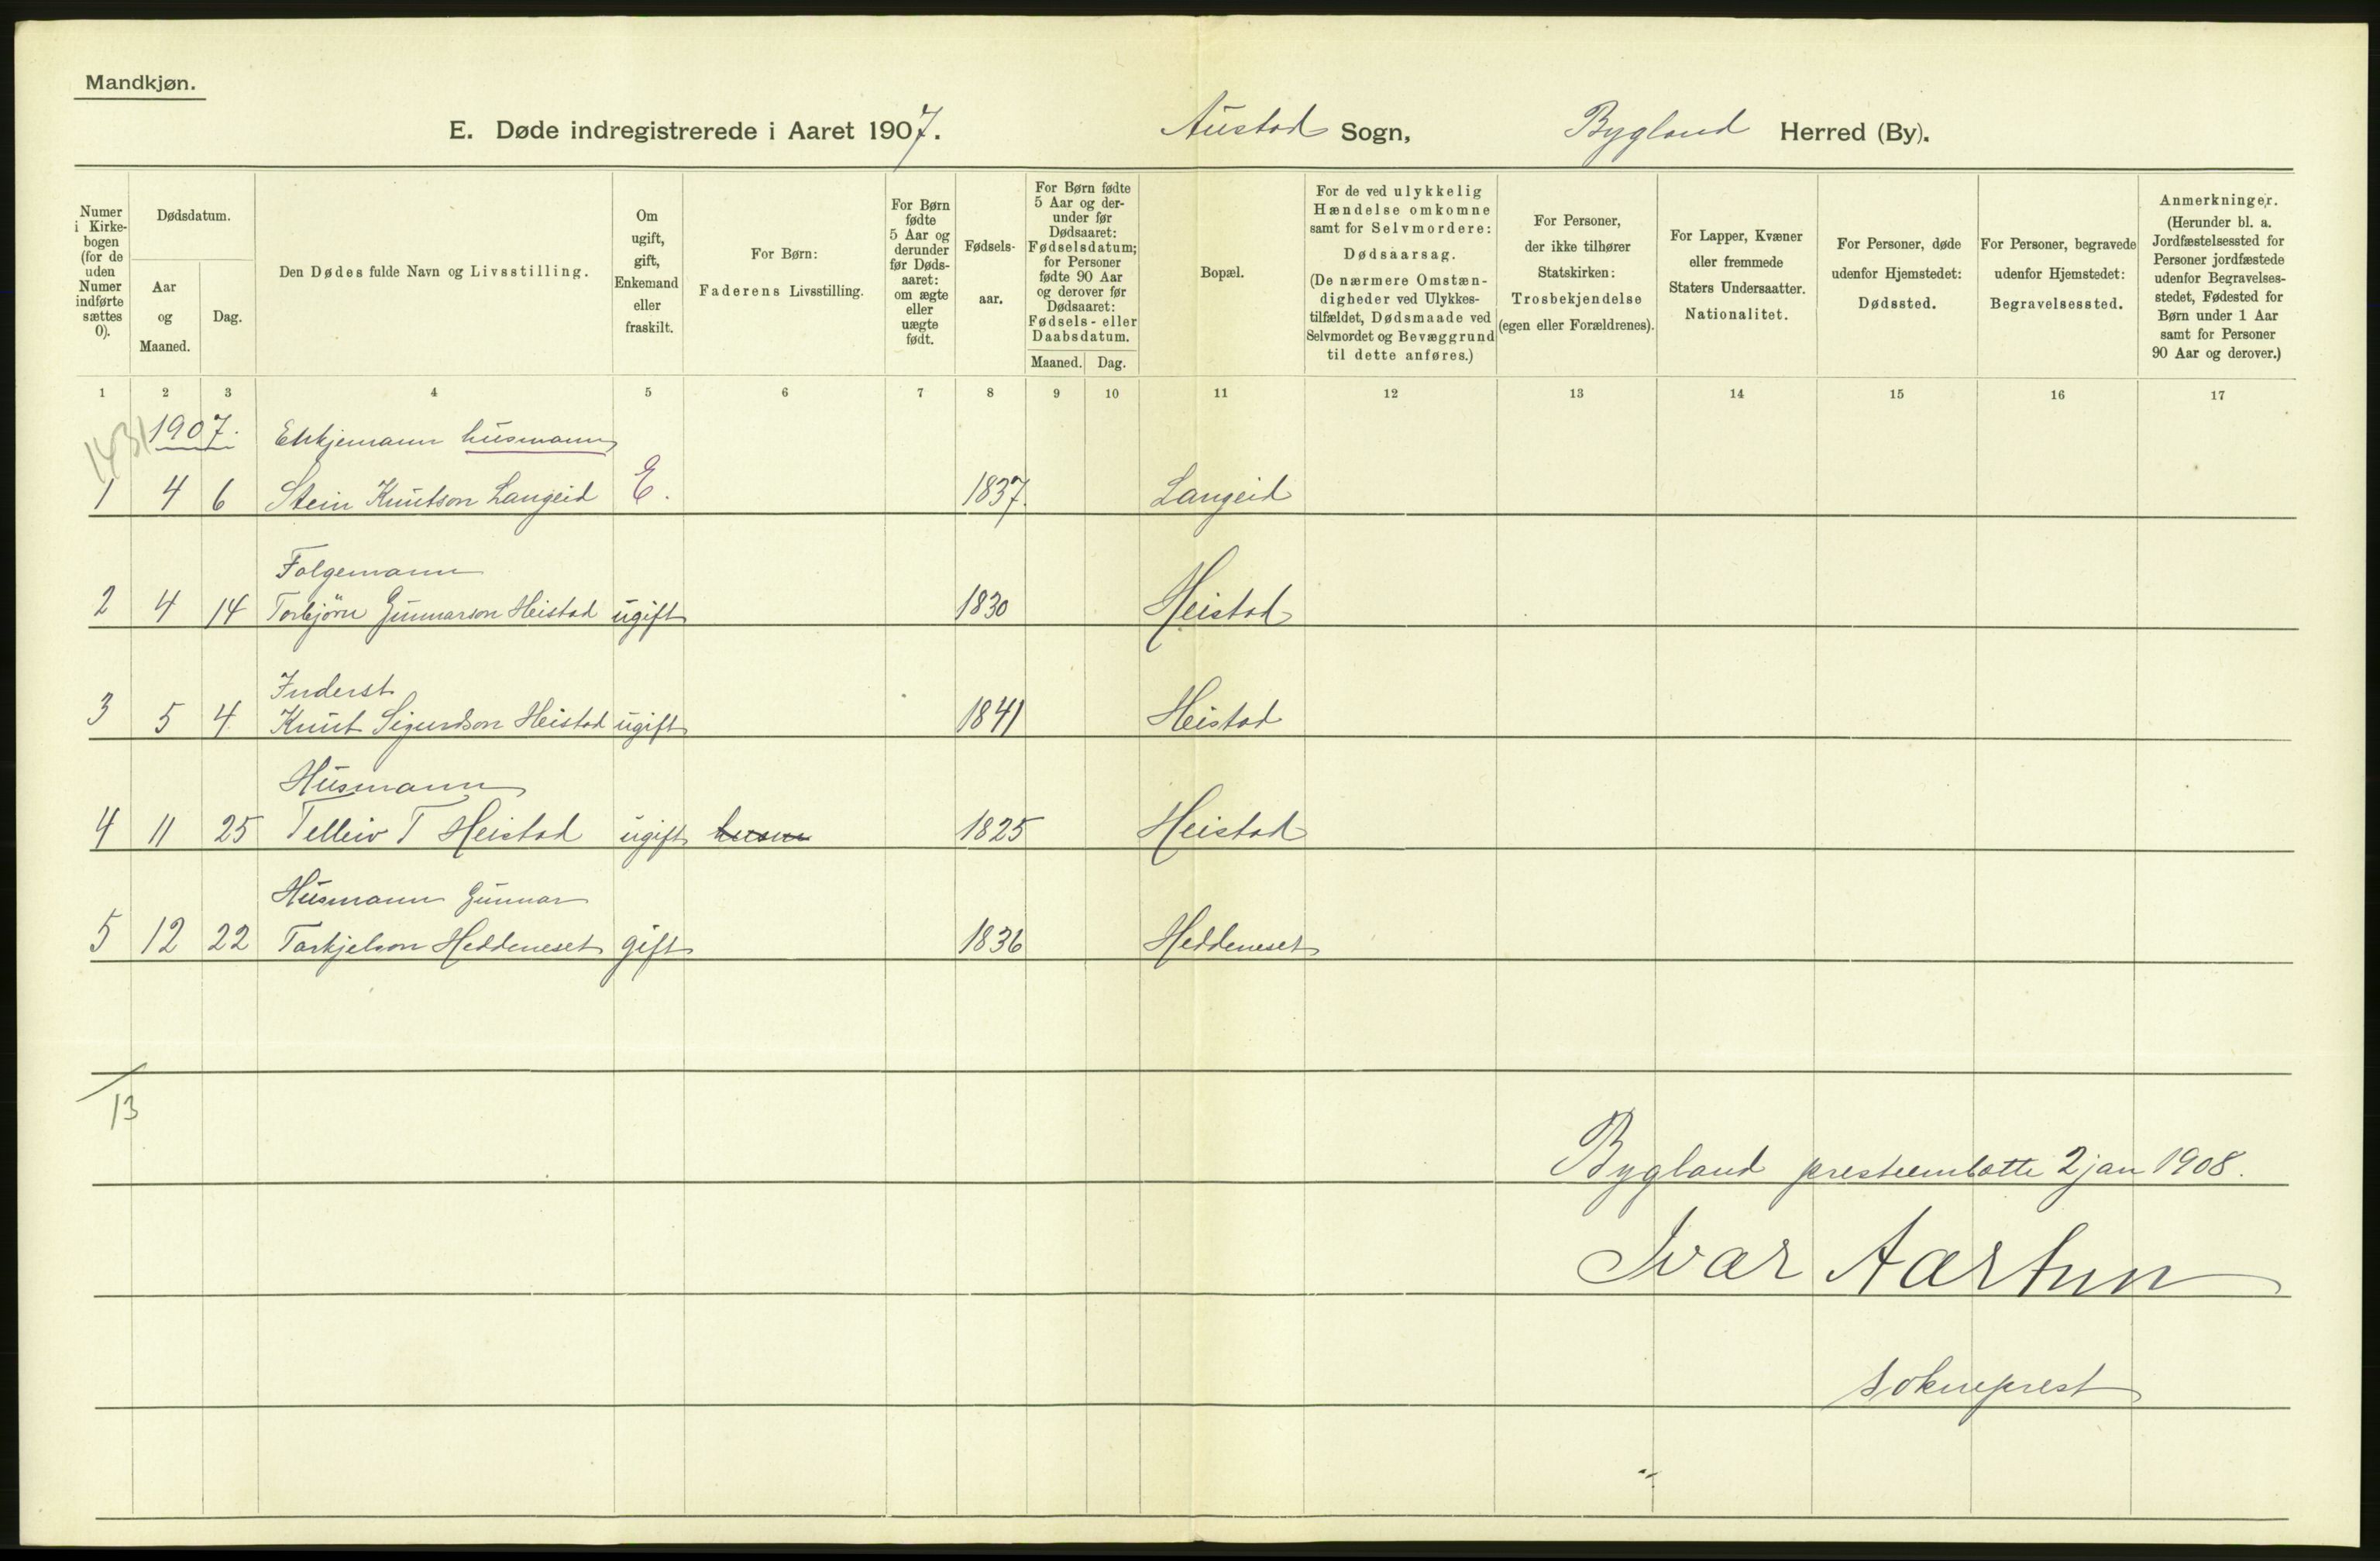 Mandkjøn.
E. Døde indregistrerede i Aaret 1907. Austad Sogn, Bygland Herred (By).
Numer i Kirke-bogen (for de uden Numer indførte sættes 0).
Dødsdatum.
Aar og Maaned.
Dag.
Den Dødes fulde Navn og Livsstilling.
Om ugift, gift, Enkemand eller fraskilt.
For Børn: Faderens Livsstilling.
For Børn fødte 5 Aar og derunder før Døds-aaret: om ægte eller uægte født.
Fødsels-aar.
For Børn fødte 5 Aar og der-under før Dødsaaret: Fødselsdatum; for Personer fødte 90 Aar og derover før Dødsaaret: Fødsels- eller Daabsdatum.
Maaned. Dag.
Bopæl.
For de ved ulykkelig Hændelse omkomne samt for Selvmordere: Dødsaarsag. (De nærmere Omstæn-digheder ved Ulykkes-tilfældet, Dødsmaade ved Selvmordet og Bevæggrund til dette anføres.)
For Personer, der ikke tilhører Statskirken: Trosbekjendelse (egen eller Forældrenes).
For Lapper, Kvæner eller fremmede Staters Undersaatter. Nationalitet.
For Personer, døde udenfor Hjemstedet: Dødssted.
For Personer, begravede udenfor Hjemstedet: Begravelsessted.
Anmerkninger. (Herunder bl. a. Jordfæstelsessted for Personer jordfæstede udenfor Begravelses-stedet, Fødested for Børn under 1 Aar samt for Personer 90 Aar og derover.)
1 2 3 4 5 6 7 8 9 10 11 12 13 14 15 16 17
1431 1907. Enkjemann husmann
1 4 6 Stein Knutson Langeid E. 1837. Langeid
Folgemann
2 4 14 Torbjörn Gunnarson Heistad ugift 1830 Heistad
Inderst
3 5 4 Knut Sigurdson Heistad ugift 1841 Heistad
Husmann
4 11 25 Telleiv T Heistad ugift husm 1825 Heistad
Husmann Gunnar
5 12 22 Tarkjelson Heddeneset gift 1836 Heddeneset
13
Bygland presteembætte 2 jan 1908.
Ivar Aartun
sokneprest